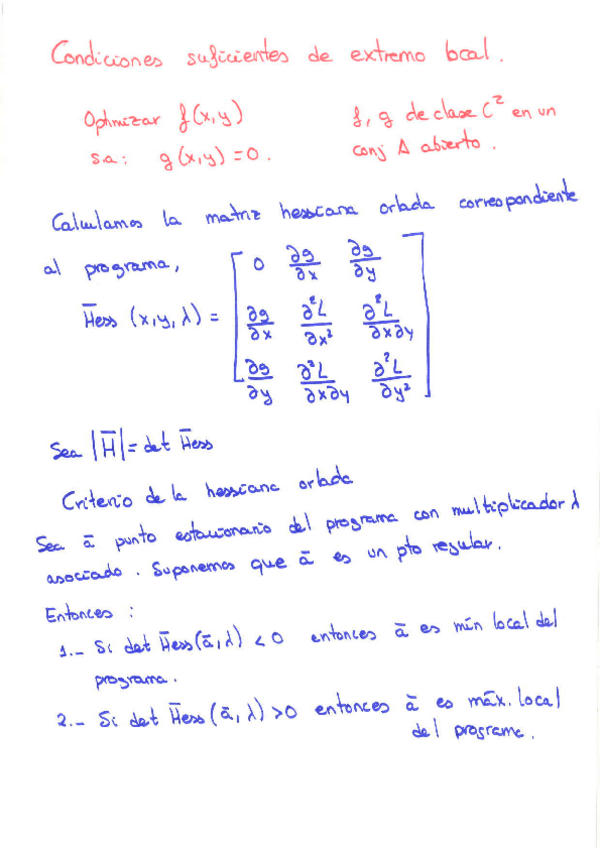 Condiciones suficientes de extremo local.
Optimizar f(x,y) f, g de clase C² en un
s.a: g(x,y) = 0. conj A abierto.
Calculamos la matriz hessiana orlada correspondiente
al programa,
H̄ess (x,y,λ) = [ 0 ∂g/∂x ∂g/∂y
∂g/∂x ∂²L/∂x² ∂²L/∂x∂y
∂g/∂y ∂²L/∂x∂y ∂²L/∂y² ]
Sea |H̄| = det H̄ess
Criterio de la hessiana orlada
Sea ā punto estacionario del programa con multiplicador λ
asociado. Suponemos que ā es un pto regular.
Entonces :
1.- Si det H̄ess(ā,λ) < 0 entonces ā es mín local del
programa.
2.- Si det H̄ess(ā,λ) > 0 entonces ā es máx. local
del programa.